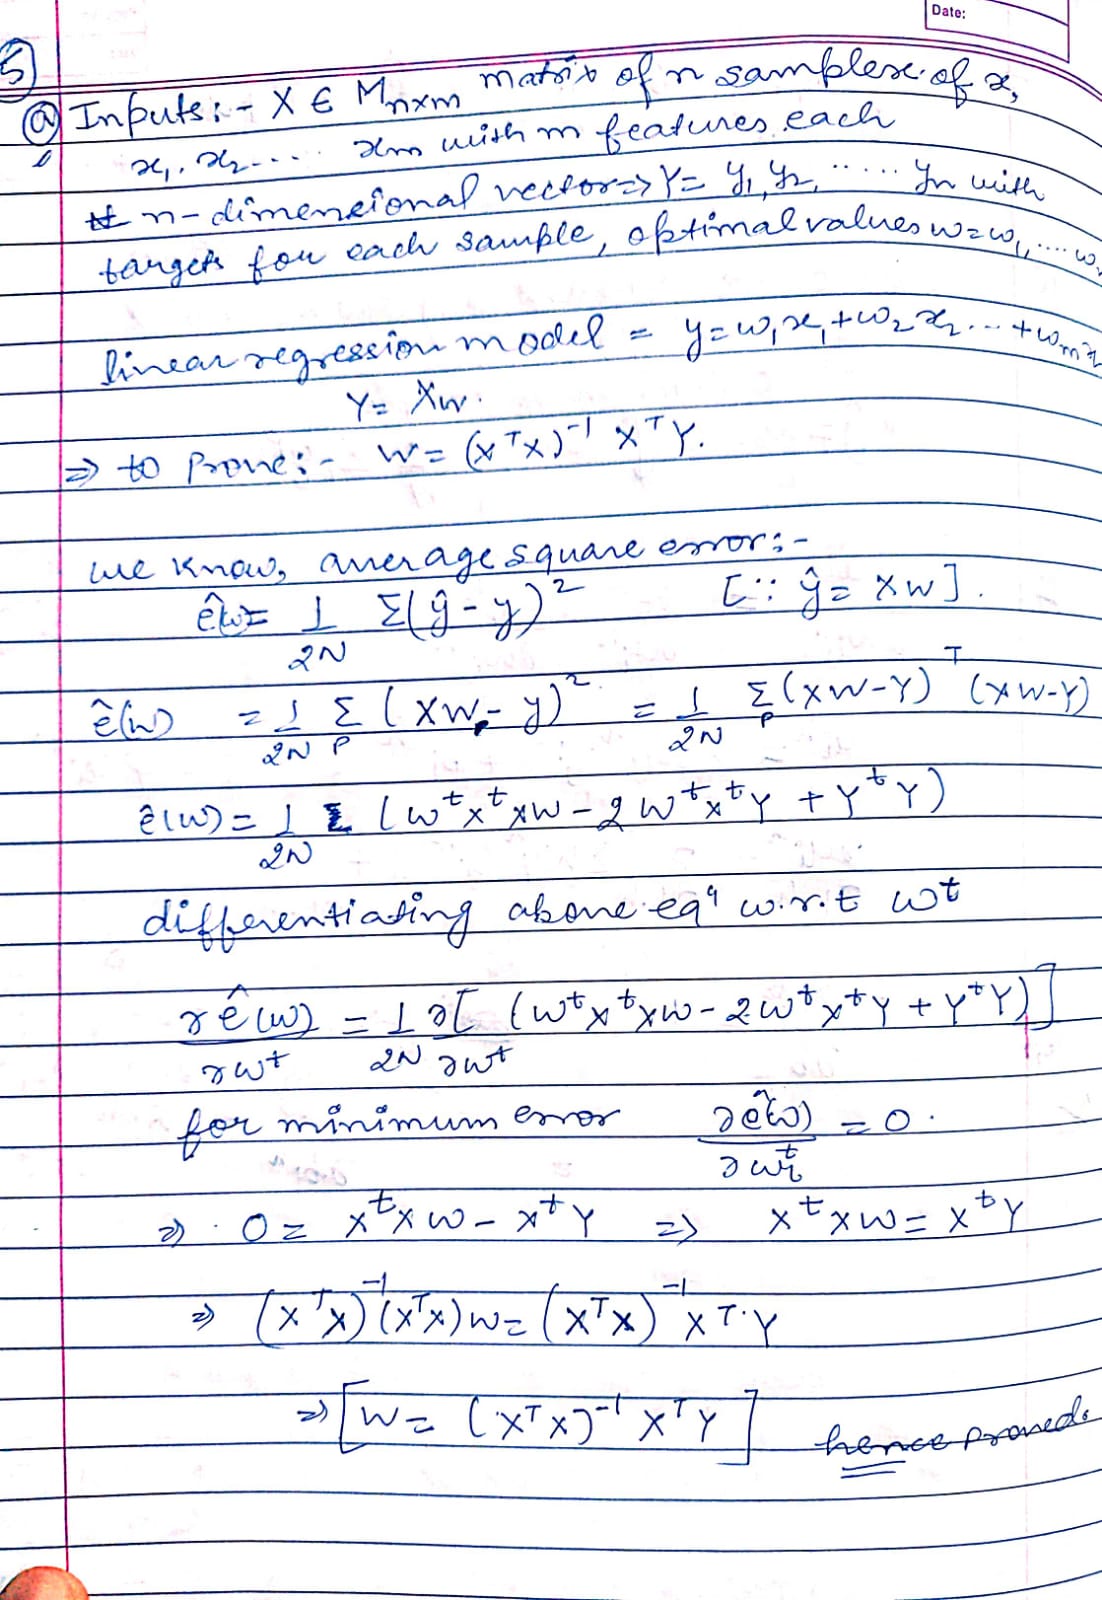 Date:
5
(a) Inputs:- X ∈ Mnxm matrix of n samples of x,
x1, x2 .... xm with m features each
n-dimensional vector => Y = y1, y2, ...... yn with
targets for each sample, optimal values w = w1, .... w
linear regression model = y = w1x1 + w2x2 ... + wmx
Y = Xw.
=> to Prove:- W = (X^T X)^-1 X^T Y.
we know, average square error:-
ê(w) = 1/2N Σ(ŷ - y)^2 [∵ ŷ = Xw].
ê(w) = 1/2N Σ_P (XW - y)^2 = 1/2N Σ_P (XW-Y)^T (XW-Y)
ê(w) = 1/2N Σ (w^t x^t xw - 2w^t x^t y + y^t y)
differentiating above eqn w.r.t w^t
∂ê(w)/∂w^t = 1/2N ∂/∂w^t [(w^t x^t xw - 2w^t x^t y + y^t y)]
for minimum error ∂ê(w)/∂w^t = 0.
=> 0 = x^t x w - x^t y => x^t x w = x^t y
=> (X^T X)^-1 (X^T X) W = (X^T X)^-1 X^T.Y
=> [W = (X^T X)^-1 X^T Y] hence proved.